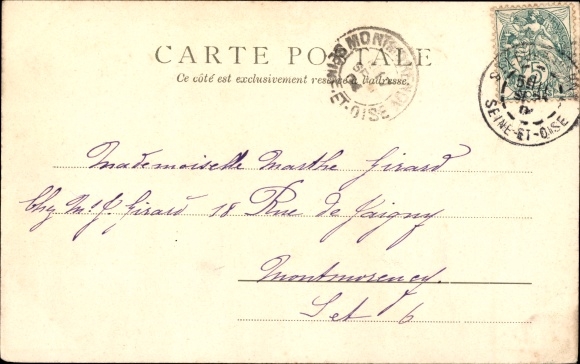 CARTE POSTALE
Ce côté est exclusivement réservé à l'adresse.
MONTMORENCY
SEINE-ET-OISE
SEINE-ET-OISE
Mademoiselle Marthe Girard
Chez Mr J. Girard 18 Rue de Jaigny
Montmorency.
S et O